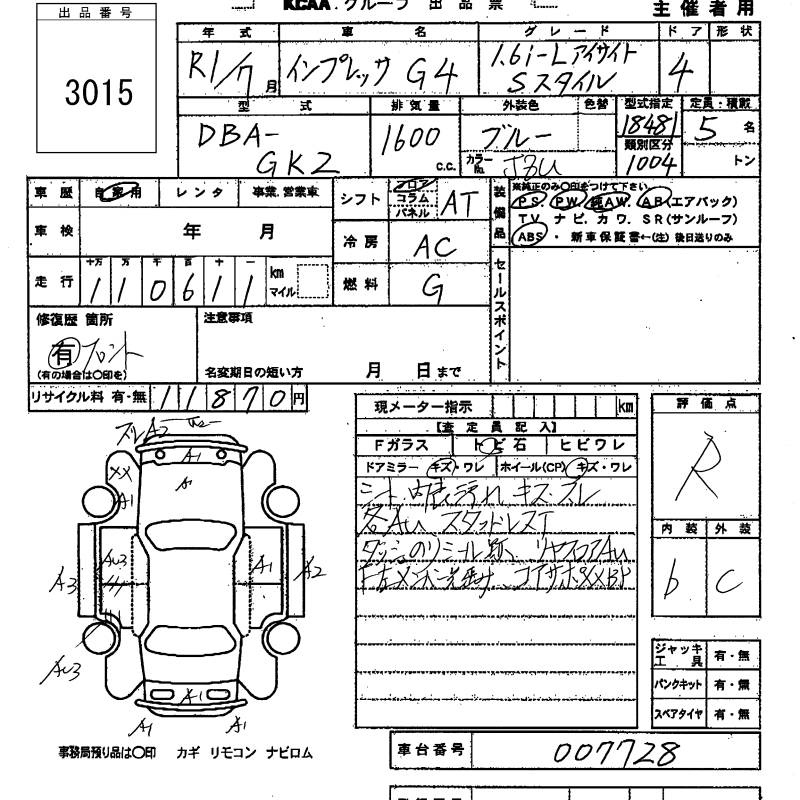 KCAA.グループ 出品票
主催者用
出品番号
3015
年式 車名 グレード ドア 形状
R1/7月 インプレッサ G4 1.6i-Lアイサイト Sスタイル 4
型式 排気量 外装色 色替 型式指定 定員・積載
DBA-GK2 1600 c.c. ブルー 18481 5名
カラーNo. 類別区分 1004 トン
車歴 自家用 レンタ 事業.営業車
シフト フロア コラム パネル AT
装備品 ※純正のみ○印をつけて下さい
PS. PW. 純AW. AB(エアバック)
TV. ナビ. カワ. SR(サンルーフ)
ABS ・ 新車保証書←(注) 後日送りのみ
車検 年 月
冷房 AC
走行 十万 万 千 百 十 一 km マイル
110611
燃料 G
セールスポイント
修復歴 箇所
有 フロント
(有の場合は○印を)
注意事項
名変期日の短い方 月 日まで
リサイクル料 有・無 11870円
現メーター指示 km
【査定員記入】
Fガラス トビ石 ヒビワレ
ドアミラー キズ・ワレ ホイール(CP) キズ・ワレ
シート・内張 汚れ キズ・スレ
各AU スタッドレスT
評価点
R
内装 外装
b C
スレA2
A1
A1
XX
A1
AU3
A3
A1
A2
AU3
A1
A1
A1
ジャッキ工具 有・無
パンクキット 有・無
スペアタイヤ 有・無
事務局預り品は○印 カギ リモコン ナビロム
車台番号 007728